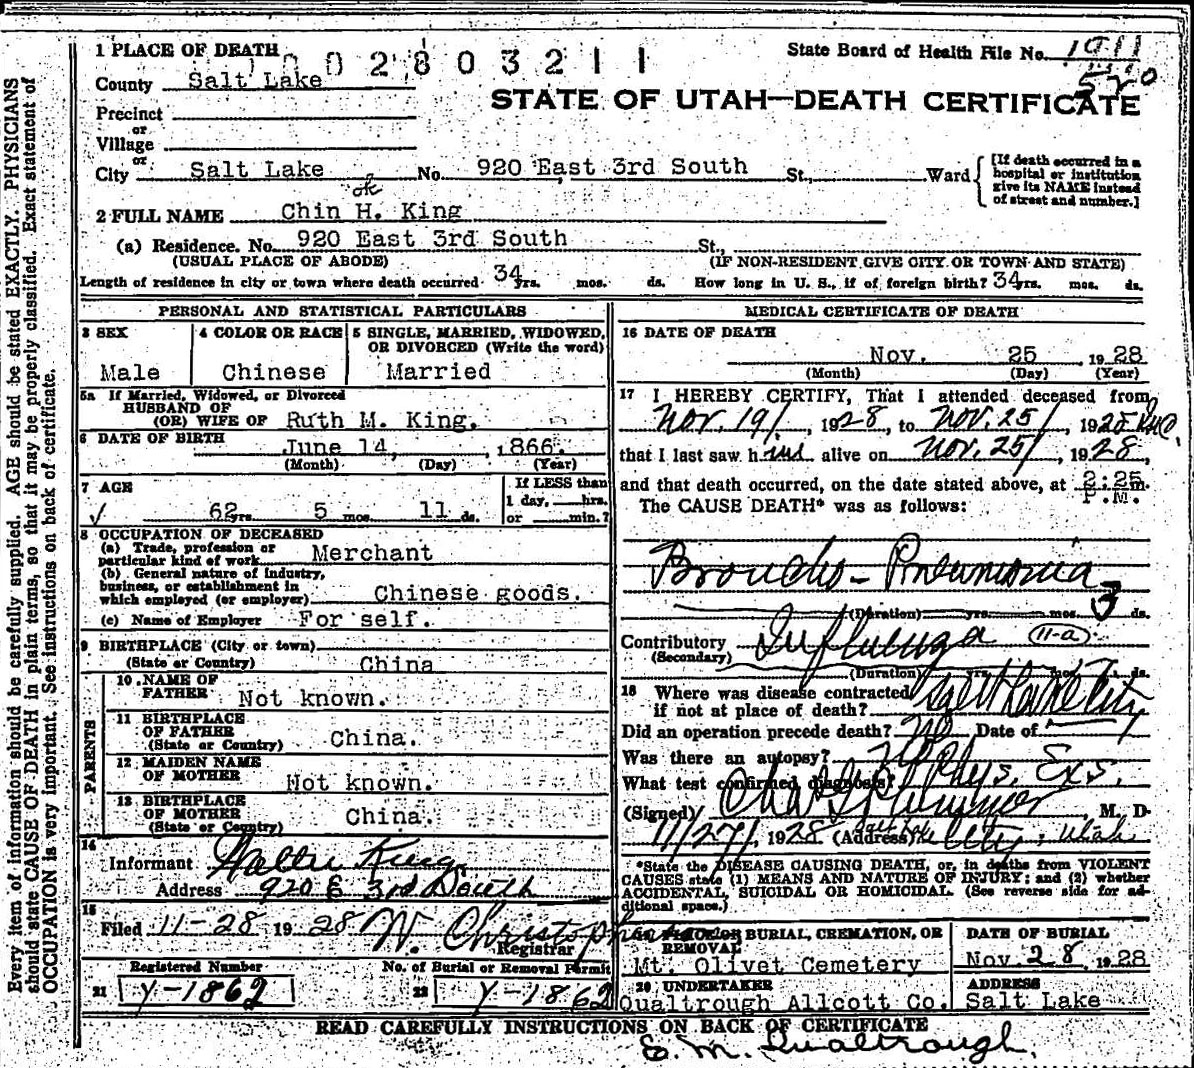 1 PLACE OF DEATH
0 0 2 8 0 3 2 1 1
State Board of Health File No. 1911
520
County Salt Lake
STATE OF UTAH—DEATH CERTIFICATE
Precinct
or
Village
or
City Salt Lake No. 920 East 3rd South St., Ward
[If death occurred in a hospital or institution give its NAME instead of street and number.]
ok
2 FULL NAME Chin H. King
(a) Residence. No. 920 East 3rd South St.,
(USUAL PLACE OF ABODE) (IF NON-RESIDENT GIVE CITY OR TOWN AND STATE)
Length of residence in city or town where death occurred 34 yrs. mos. ds. How long in U. S., if of foreign birth? 34 yrs. mos. ds.
PERSONAL AND STATISTICAL PARTICULARS
3 SEX
Male
4 COLOR OR RACE
Chinese
5 SINGLE, MARRIED, WIDOWED,
OR DIVORCED (Write the word)
Married
5a If Married, Widowed, or Divorced
HUSBAND OF
(OR) WIFE OF Ruth M. King.
6 DATE OF BIRTH June 14, 1866.
(Month) (Day) (Year)
7 AGE
62 yrs. 5 mos. 11 ds.
If LESS than
1 day, hrs.
or min.?
8 OCCUPATION OF DECEASED
(a) Trade, profession or
particular kind of work Merchant
(b) General nature of industry,
business, or establishment in
which employed (or employer) Chinese goods.
(c) Name of Employer For self.
9 BIRTHPLACE (City or town)
(State or Country) China
PARENTS
10 NAME OF
FATHER Not known.
11 BIRTHPLACE
OF FATHER
(State or Country) China.
12 MAIDEN NAME
OF MOTHER Not known.
13 BIRTHPLACE
OF MOTHER
(State or Country) China.
14
Informant Walter King
Address 920 E 3rd South
15
Filed 11-28 1928 W. Christopherson
Registrar
Registered Number
21 Y-1862
No. of Burial or Removal Permit
22 Y-1862
MEDICAL CERTIFICATE OF DEATH
16 DATE OF DEATH
Nov. 25 1928
(Month) (Day) (Year)
17 I HEREBY CERTIFY, That I attended deceased from
Nov. 19, 1928, to Nov. 25, 1928
that I last saw him alive on Nov. 25, 1928,
and that death occurred, on the date stated above, at 2:25 m.
P.M.
The CAUSE DEATH* was as follows:
Broncho-Pneumonia
(Duration) yrs. mos. 3 ds.
Contributory Influenza 11-a
(Secondary)
(Duration) yrs. mos. ds.
18 Where was disease contracted
if not at place of death? Salt Lake City
Did an operation precede death? No Date of
Was there an autopsy? No
What test confirmed diagnosis? Phys. Exs.
(Signed) Chas. G. Plummer M. D.
11/27, 1928 (Address) Salt Lake City, Utah
*State the DISEASE CAUSING DEATH, or, in deaths from VIOLENT
CAUSES state (1) MEANS AND NATURE OF INJURY; and (2) whether
ACCIDENTAL, SUICIDAL OR HOMICIDAL. (See reverse side for ad-
ditional space.)
19 PLACE OF BURIAL, CREMATION, OR
REMOVAL
Mt. Olivet Cemetery
DATE OF BURIAL
Nov. 28, 1928
20 UNDERTAKER
Qualtrough Allcott Co.
ADDRESS
Salt Lake
READ CAREFULLY INSTRUCTIONS ON BACK OF CERTIFICATE
E. M. Qualtrough.
Every item of information should be carefully supplied. AGE should be stated EXACTLY. PHYSICIANS
should state CAUSE OF DEATH in plain terms, so that it may be properly classified. Exact statement of
OCCUPATION is very important. See instructions on back of certificate.